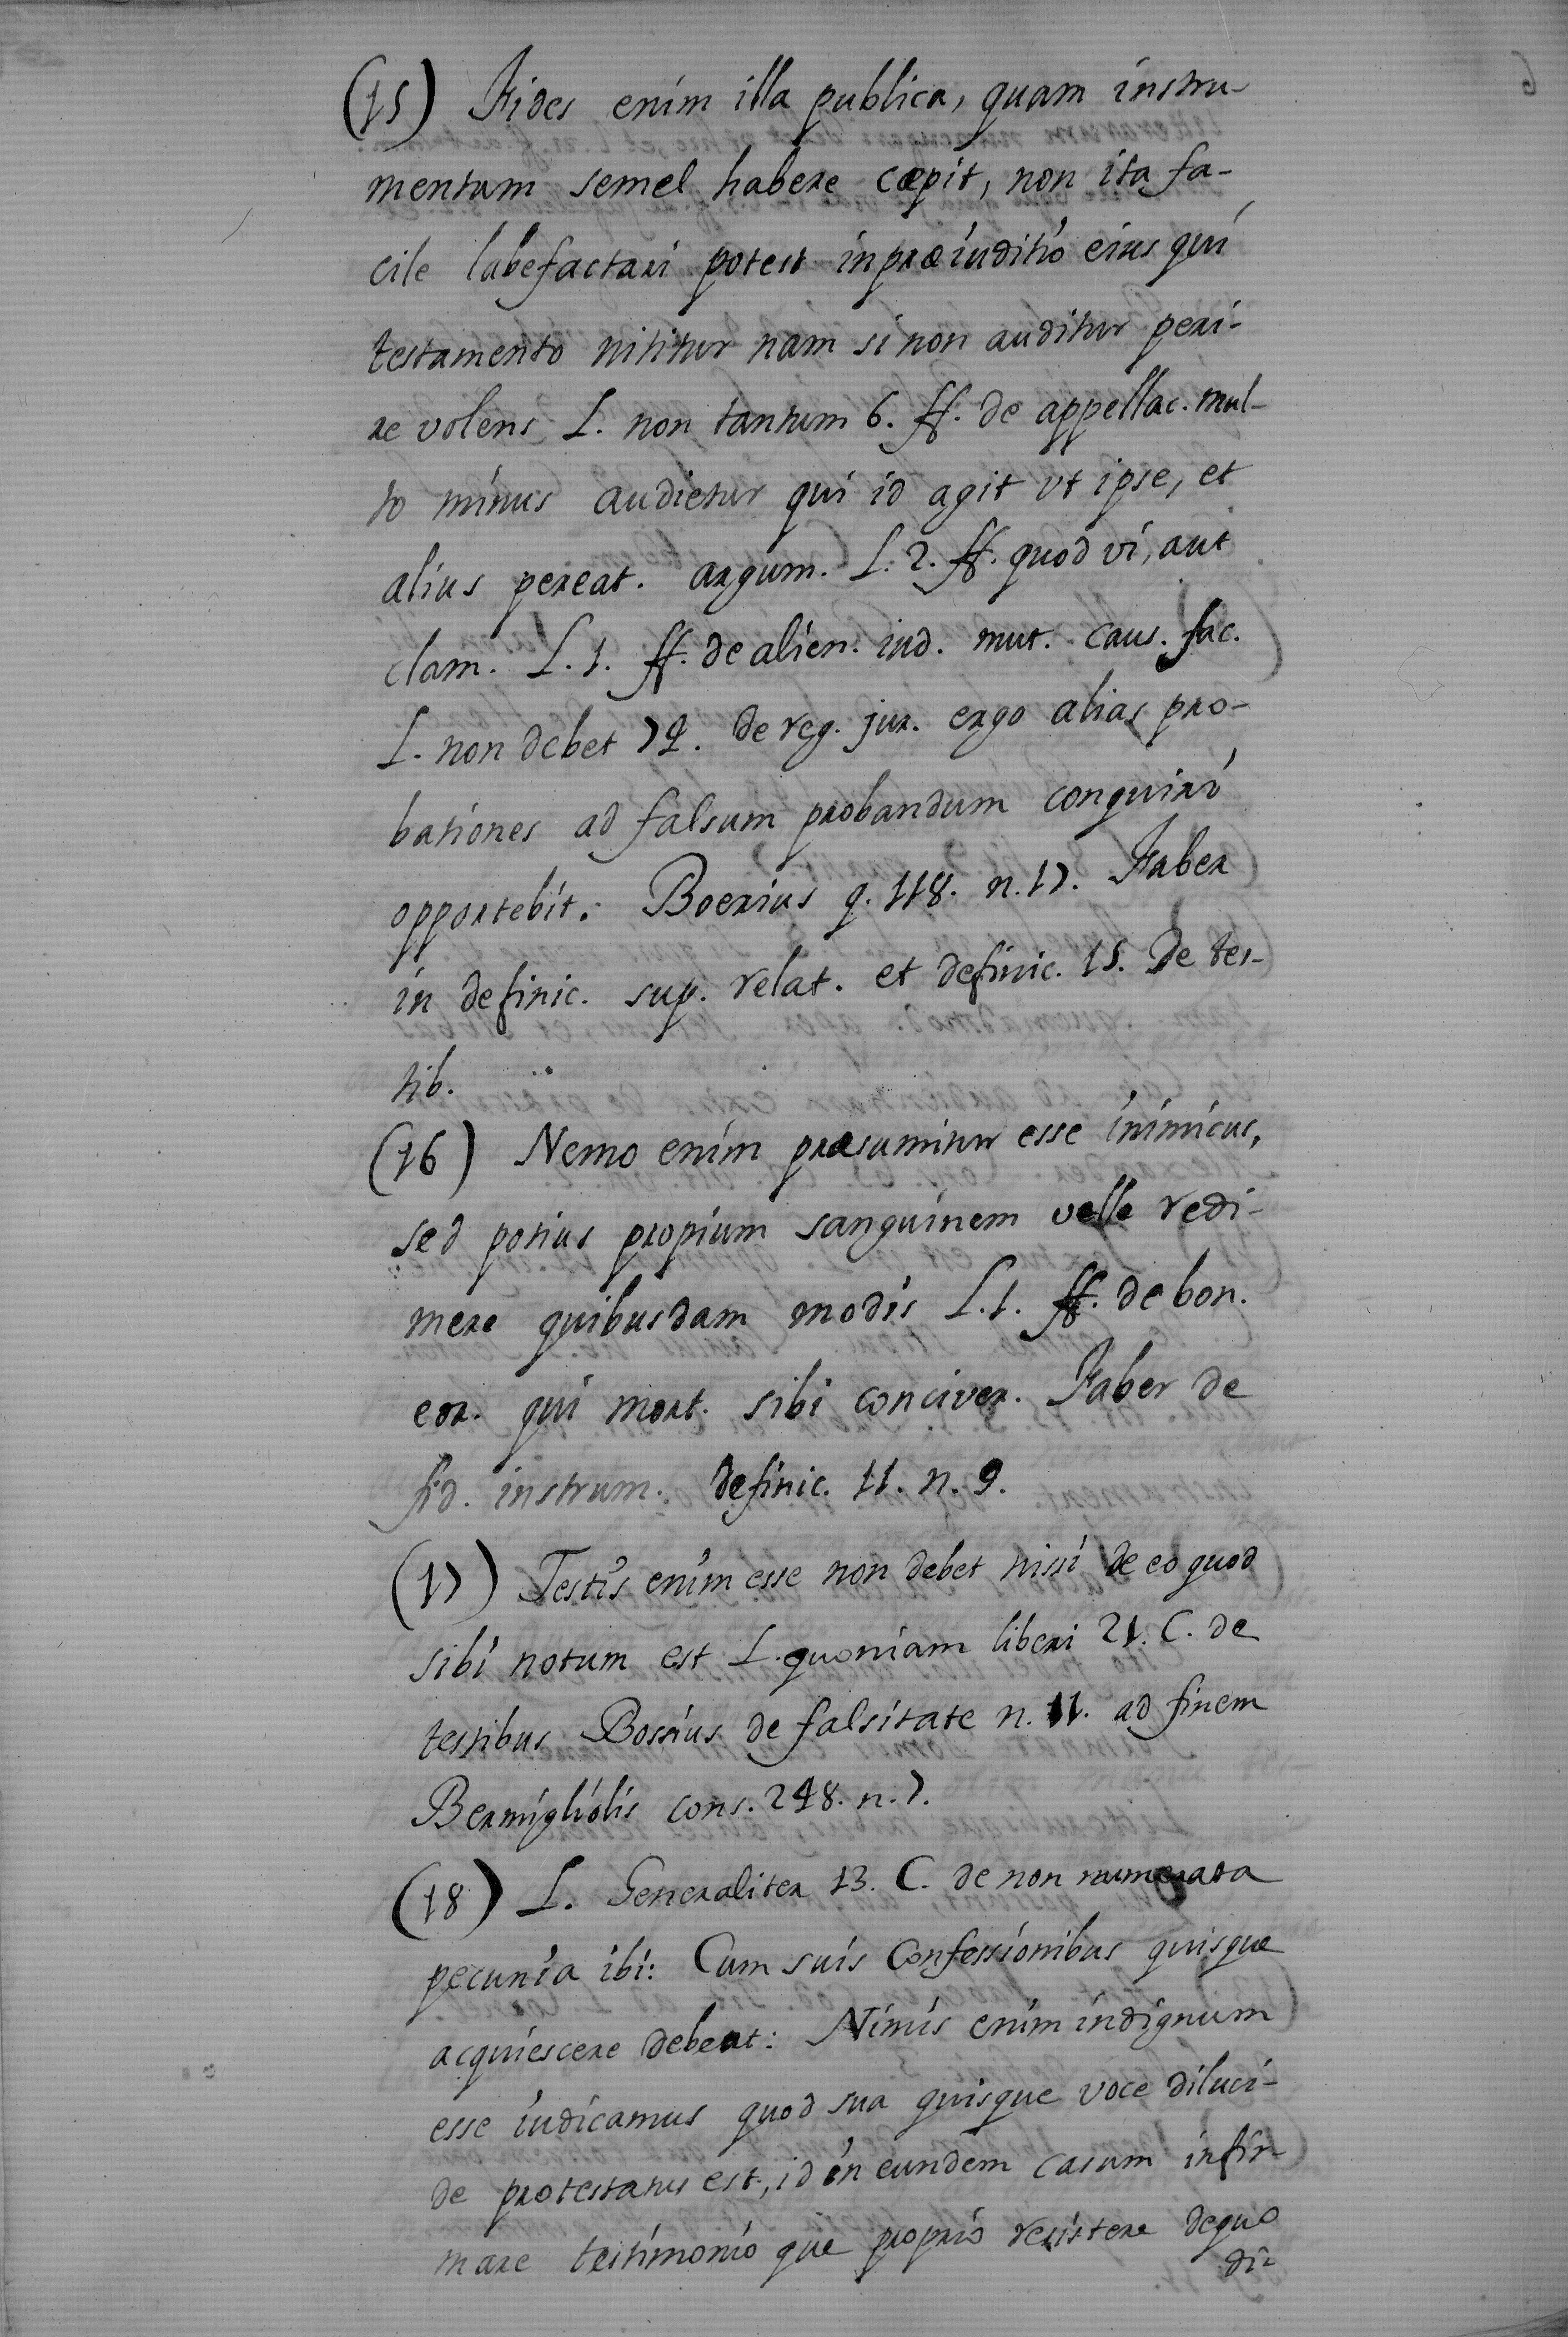 (15) Fides enim illa publica, quam instru-
mentum semel habere cœpit, non ita fa-
cile labefactari potest in præiuditio eius qui
testamento nititur nam si non auditur peri-
re volens L. non tantum 6. ff. de appellac. mul-
to minus audietur qui id agit vt ipse, et
alius pereat. argum. L. 2. ff. quod vi, aut
clam. L. 1. ff. de alien. iud. mut. caus. fac.
L. non debet 74. de reg. jur. ergo alias pro-
bationes ad falsum probandum conquiri
opportebit. Boerius q. 118. n. 17. Faber
in definic. sup. relat. et definic. 15. De tes-
tib.
(16) Nemo enim præsumitur esse inimicus,
sed potius propium sanguinem velle redi-
mere quibusdam modis L. 1. ff. de bon.
eor. qui mort. sibi conciver. Faber de
fid. instrum. definic. 11. n. 9.
(17) Testis enim esse non debet nissi de eo quod
sibi notum est L. quoniam liberi 21. C. de
testibus Bossius de falsitate n. 11. ad finem
Bermigliolis cons. 248. n. 7.
(18) L. Generaliter 13. C. de non numerata
pecunia ibi: Cum suis Confessionibus quisque
acquiescere debeat: Nimis enim indignum
esse iudicamus quod sua quisque voce diluci-
de protestatus est, id in eundem casum infir-
mare testimonio que proprio resistere de quo
di-